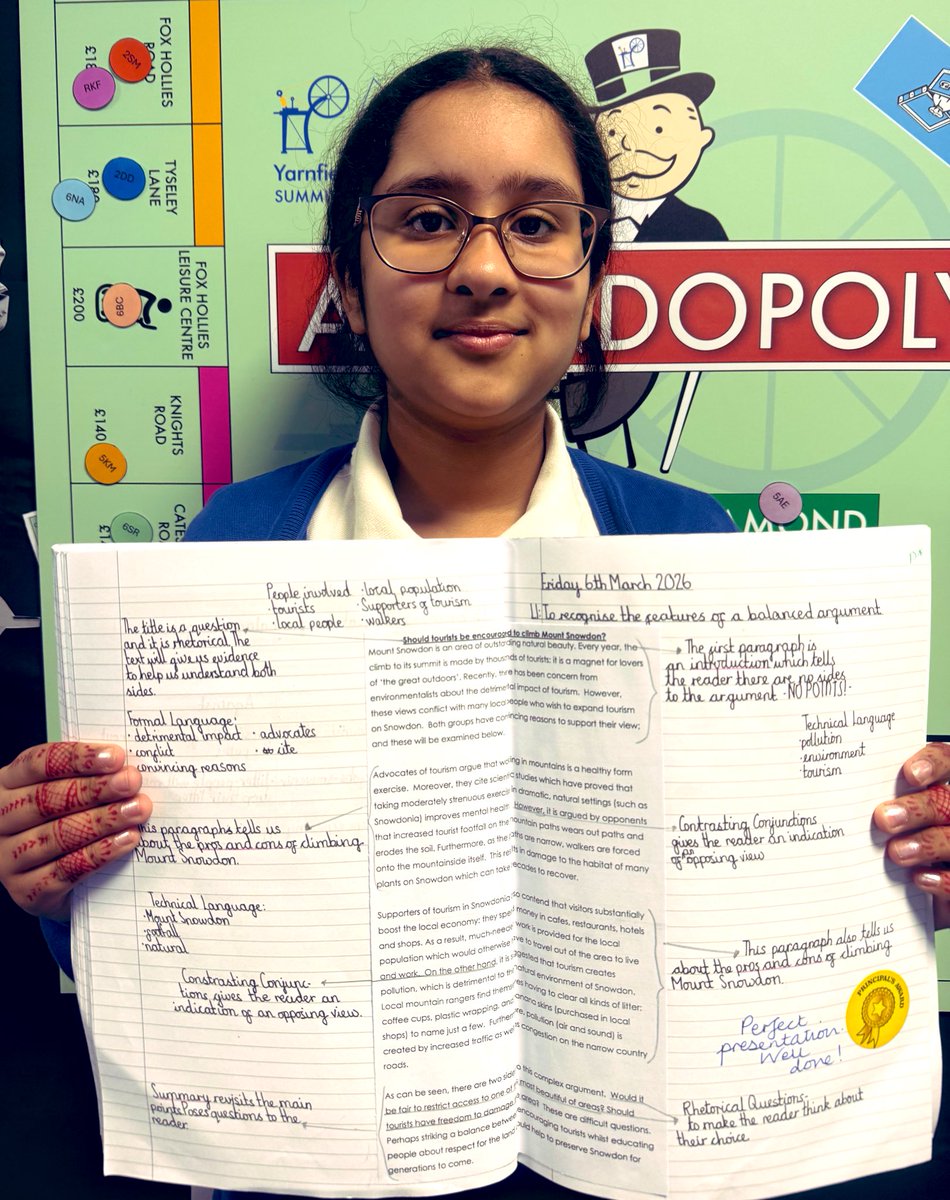 FOX HOLLIES
ROAD
£18
2SM
RKF
TYSELEY
LANE
£180
2DD
6NA
FOX HOLLIES
LEISURE CENTRE
£200
6BC
KNIGHTS
ROAD
£140
5KM
CATES
RO
£1
6SR
Yarnfie
SUMM
A
DOPOLY
5AE
AMOND
People involved
·tourists
·local people
·local population
·Supporters of tourism
·walkers
The title is a question
and it is rhetorical. The
text will give us evidence
to help us understand both
sides.
Formal Language:
·detrimental impact
·conflict
·convincing reasons
·advocates
·cite
This paragraphs tells us
about the pros and cons of climbing
Mount Snowdon.
Technical Language:
·Mount Snowdon
·footfall
·natural
Constrasting Conjunc-
tions, gives the reader an
indication of an opposing view.
Summary revisits the main
points. Poses questions to the
reader.
Should tourists be encouraged to climb Mount Snowdon?
Mount Snowdon is an area of outstanding natural beauty. Every year, the
climb to its summit is made by thousands of tourists; it is a magnet for lovers
of 'the great outdoors'. Recently, there has been concern from
environmentalists about the detrimental impact of tourism. However,
these views conflict with many local people who wish to expand tourism
on Snowdon. Both groups have convincing reasons to support their view;
and these will be examined below.
Advocates of tourism argue that walking in mountains is a healthy form
exercise. Moreover, they cite scientific studies which have proved that
taking moderately strenuous exercise in dramatic, natural settings (such as
Snowdonia) improves mental health. However, it is argued by opponents
that increased tourist footfall on the mountain paths wears out paths and
erodes the soil. Furthermore, as the paths are narrow, walkers are forced
onto the mountainside itself. This results in damage to the habitat of many
plants on Snowdon which can take decades to recover.
Supporters of tourism in Snowdonia also contend that visitors substantially
boost the local economy: they spend money in cafes, restaurants, hotels
and shops. As a result, much-needed work is provided for the local
population which would otherwise have to travel out of the area to live
and work. On the other hand, it is suggested that tourism creates
pollution, which is detrimental to the natural environment of Snowdon.
Local mountain rangers find themselves having to clear all kinds of litter:
coffee cups, plastic wrapping, and banana skins (purchased in local
shops) to name just a few. Furthermore, pollution (air and sound) is
created by increased traffic as well as congestion on the narrow country
roads.
As can be seen, there are two sides to this complex argument. Would it
be fair to restrict access to one of the most beautiful of areas? Should
tourists have freedom to damage an area? These are difficult questions.
Perhaps striking a balance between encouraging tourists whilst educating
people about respect for the land would help to preserve Snowdon for
generations to come.
Friday 6th March 2026
LI: To recognise the features of a balanced argument
The first paragraph is
an introduction which tells
the reader there are no sides
to the argument - NO POINTS!
Technical Language
·pollution
·environment
·tourism
Contrasting Conjunctions
gives the reader an indication
of an opposing view
This paragraph also tells us
about the pros and cons of climbing
Mount Snowdon.
PRINCIPAL'S AWARD
Perfect
presentation.
Well
done!
Rhetorical Questions:
to make the reader think about
their choice